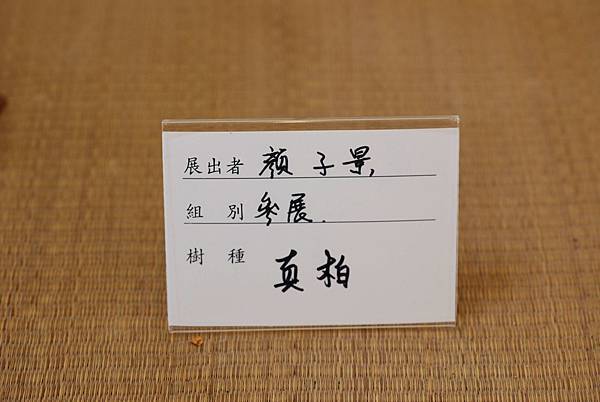 展出者 顏子景
組別 參展
樹種 真柏